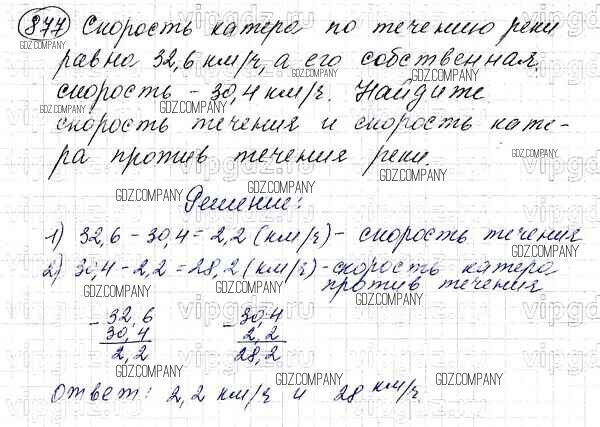 877 Скорость катера по течению реки
равна 32,6 км/ч, а его собственная
скорость - 30,4 км/ч. Найдите
скорость течения и скорость кате-
ра против течения реки.
Решение:
1) 32,6 - 30,4 = 2,2 (км/ч) - скорость течения
2) 30,4 - 2,2 = 28,2 (км/ч) - скорость катера
против течения
- 32,6 - 30,4
30,4 2,2
2,2 28,2
Ответ: 2,2 км/ч и 28 км/ч.
GDZ.COMPANY
vipgdz.ru